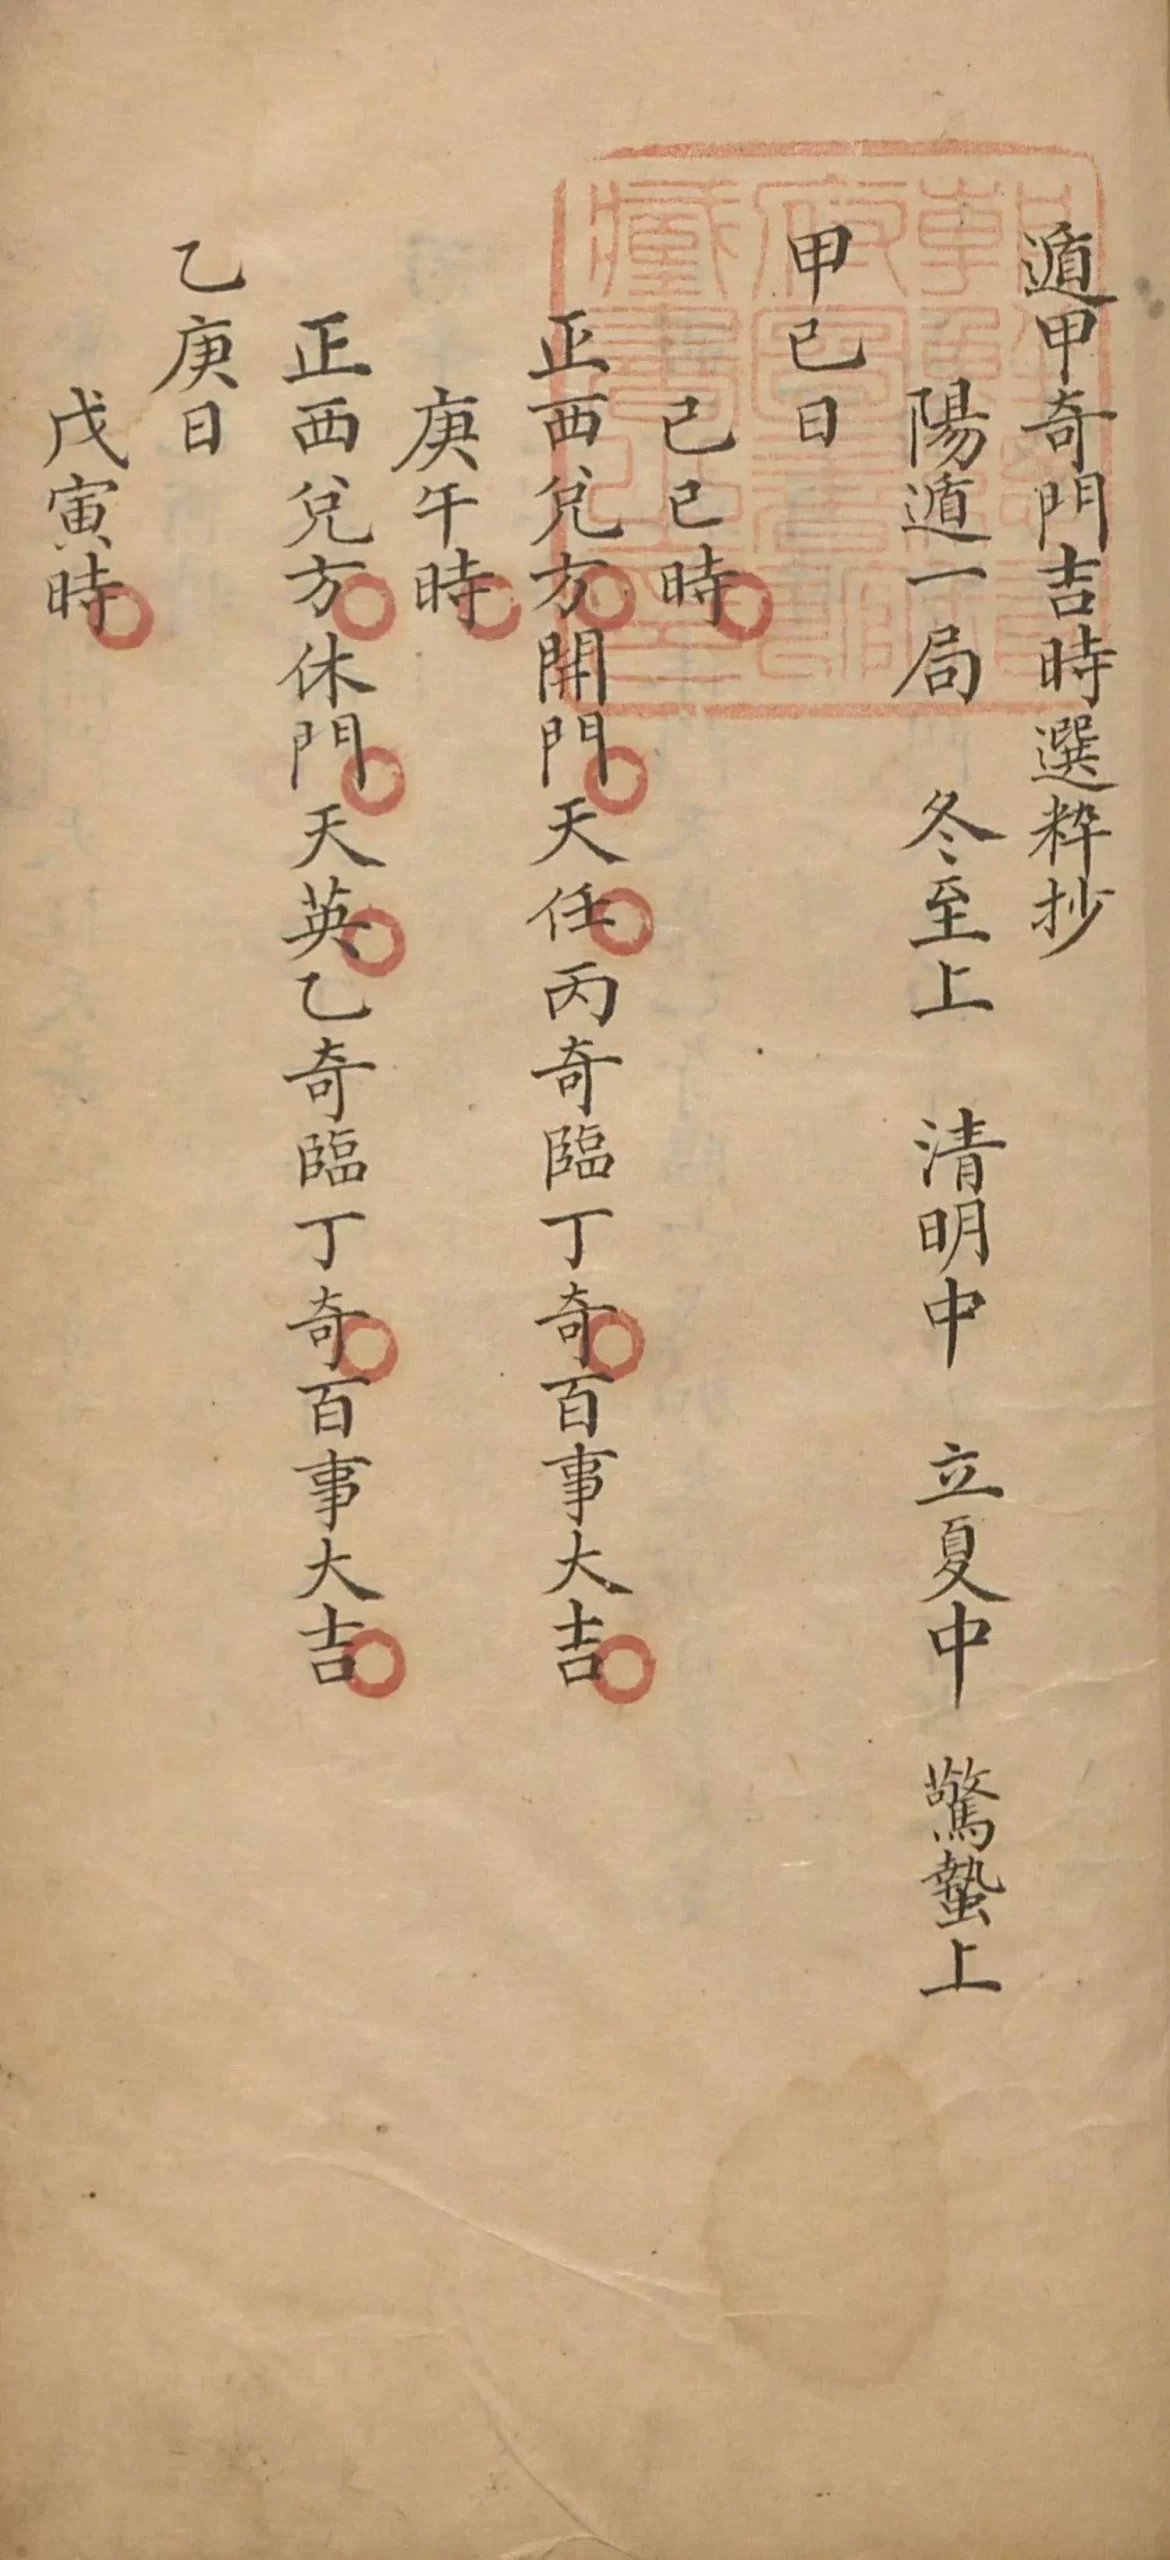 遁甲奇門吉時選粹抄
陽遁一局 冬至上 清明中 立夏中 驚蟄上
甲己日
己巳時
正西兌方開門天任丙奇臨丁奇百事大吉
庚午時
正西兌方休門天英乙奇臨丁奇百事大吉
乙庚日
戊寅時